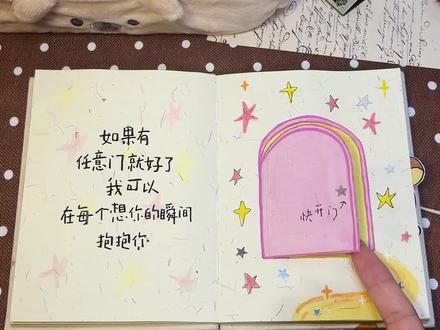 如果有
任意门就好了
我可以
在每个想你的瞬间
抱抱你
快开门